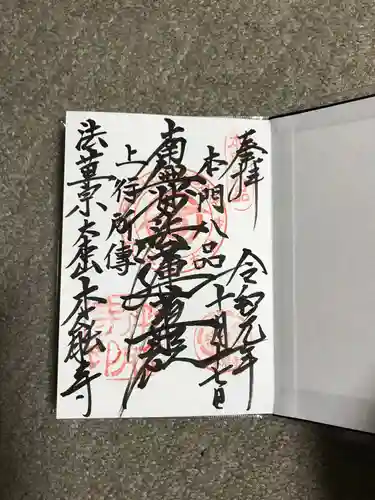 奉拝
令和元年
本門八品
十一月十七日
南無妙法蓮華経
上行所傳
法華宗大本山本能寺